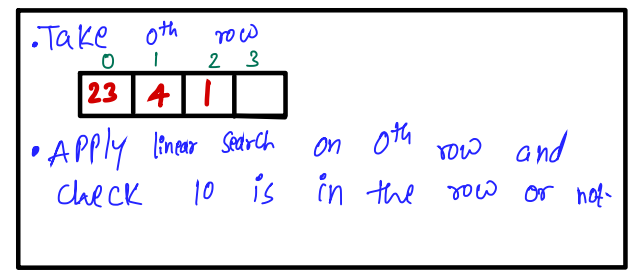 • Take 0th row
0 1 2 3
23 4 1
• Apply linear search on 0th row and
check 10 is in the row or not.